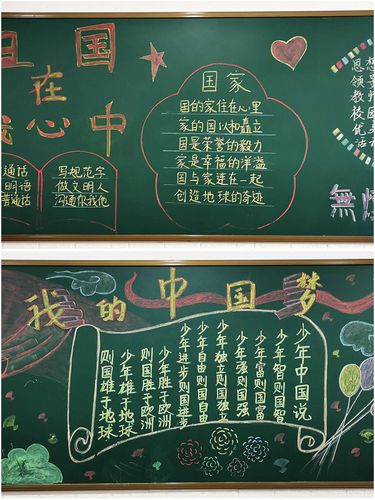 国
在
心中
通话
写规范字
做文明人
沟通你我他
国家
国的家住在心里
家的国以和矗立
国是荣誉的毅力
家是幸福的洋溢
国与家连在一起
创造地球的奇迹
無
我的中国梦
少年中国说
少年智则国智
少年富则国富
少年强则国强
少年独立则国独立
少年自由则国自由
少年进步则国进步
少年胜于欧洲
则国胜于欧洲
少年雄于地球
则国雄于地球